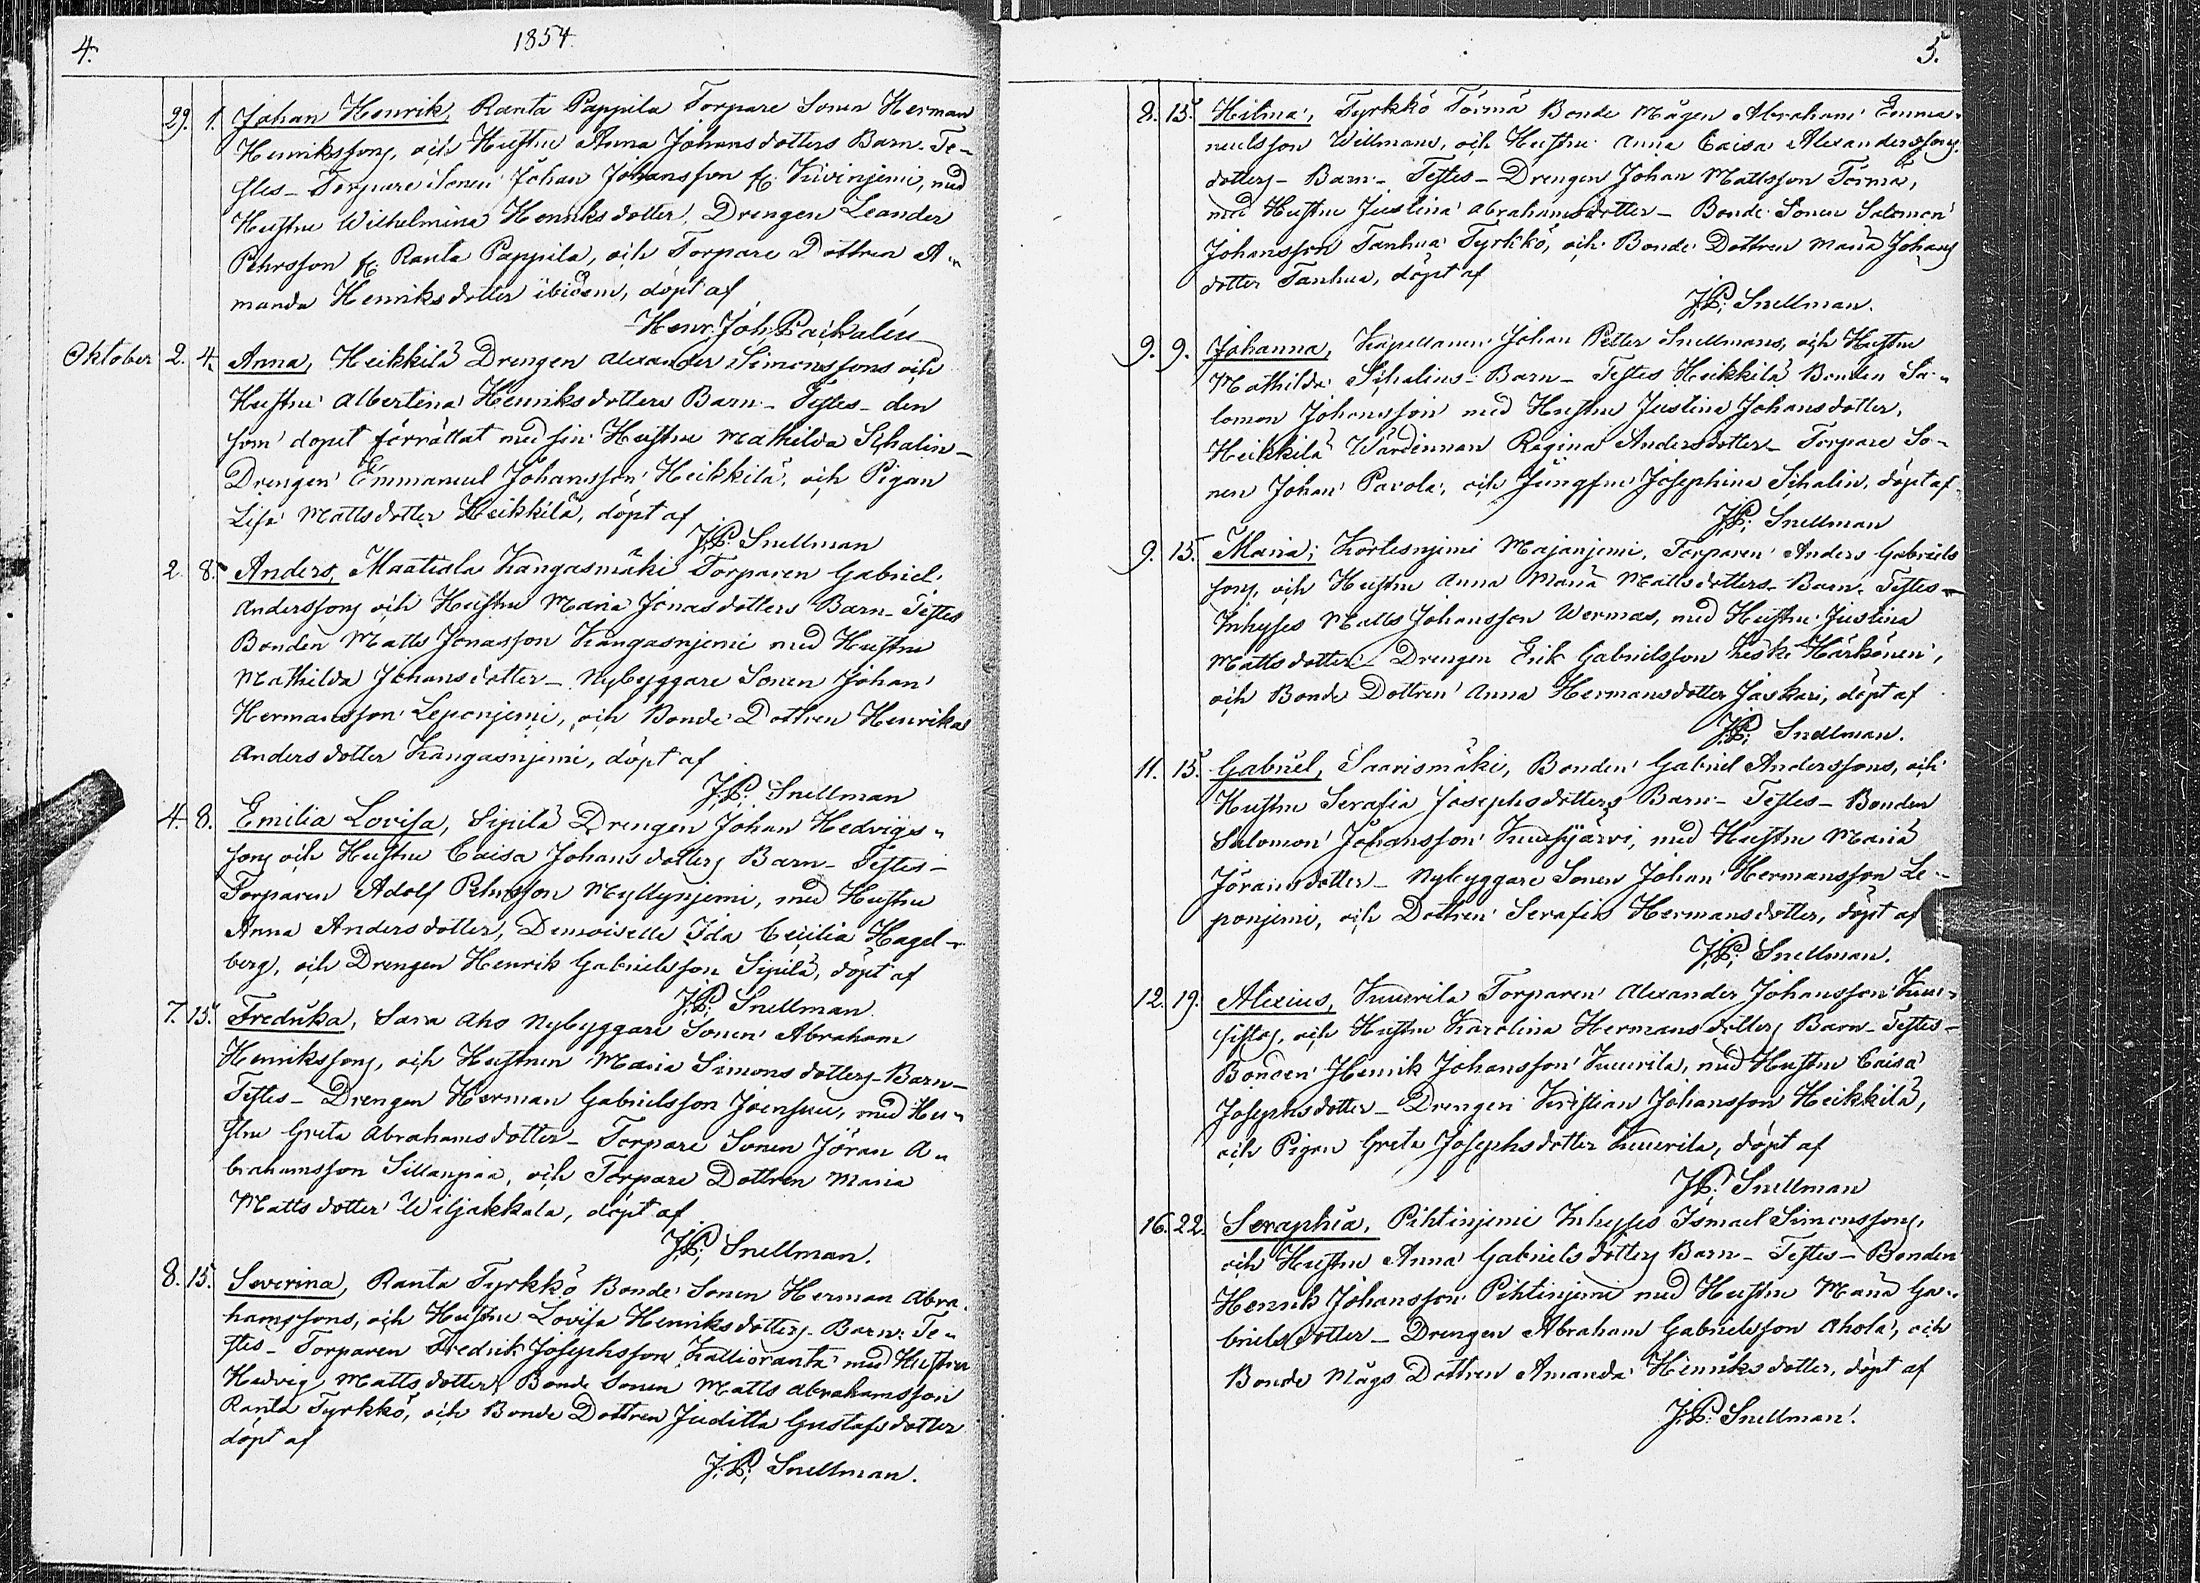 4.
1854.
29. 1. Johan Henrik, Ranta Pappila Torpare Sonen Herman
Henrikssons, och Hustru Anna Johansdotters Barn. Te-
stes - Torpare Sonen Johan Johansson fr. Kivinjemi, med
Hustru Wilhelmina Henriksdotter, Drengen Leander
Pehrsson fr. Ranta Pappila, och Torpare Dottren A-
manda Henriksdotter ibidem, döpt af
Henr. Joh.
Oktober 2. 4. Anna, Heikkilä Drengen Alexander Simonssons och
Hustru Albertina Henriksdotters Barn - Testes - den
som dopet förrättat med sin Hustru Mathilda Schalin -
Drengen Emmanuel Johansson Heikkilä, och Pigan
Lisa Mattsdotter Heikkilä, döpt af
J.P. Snellman
2. 8. Anders, Maatiala Kangasmäki Torparen Gabriel
Anderssons och Hustru Maria Jonasdotters Barn - Testes
Bonden Matts Jonasson Kangasnjemi med Hustru
Mathilda Johansdotter - Nybyggare Sonen Johan
Hermansson Leponjemi, och Bonde Dottren Henrika
Andersdotter Kangasnjemi, döpt af
J.P. Snellman
4. 8. Emilia Lovisa, Sipilä Drengen Johan Hedvigs-
sons och Hustru Caisa Johansdotters Barn - Testes -
Torparen Adolf Pehrsson Myllynjemi, med Hustru
Anna Andersdotter, Demoiselle Ida Cecilia Hagel-
berg, och Drengen Henrik Gabrielsson Sipilä, döpt af
J.P. Snellman.
7. 15. Fredrika, Sara Aho Nybyggare Sonen Abraham
Henrikssons, och Hustrun Maria Simonsdotters - Barn -
Testes - Drengen Herman Gabrielsson Joensuu, med Hu-
stru Greta Abrahamsdotter - Torpare Sonen Jöran A-
brahamsson Sillanpää, och Torpare Dottren Maria
Mattsdotter Wiljakkala, döpt af
J.P. Snellman.
8. 15. Severina, Ranta Tyrkkö Bonde Sonen Herman Abra-
hamssons, och Hustru Lovisa Henriksdotters - Barn. Te-
stes - Torparen Fredrik Josephsson Kallioranta med Hustru
Hedvig Mattsdotter, Bonde Sonen Matts Abrahamsson
Ranta Tyrkkö, och Bonde Dottren Juditta Gustafsdotter
döpt af
J.P. Snellman.
5.
8. 15. Hilma, Tyrkkö Törmä Bonde Mågen Abraham Emma-
nuelsson Willmans, och Hustru Anna Caisa Alexandersson
dotters - Barn - Testes - Drengen Johan Mattsson Törmä,
med Hustru Justina Abrahamsdotter - Bonde Sonen Salomon
Johansson Tanhua Tyrkkö, och Bonde Dottren Maria Johans
dotter Tanhua, döpt af
J.P. Snellman.
9. 9. Johanna, Kapellanen Johan Petter Snellmans, och Hustru
Mathilda Schalins - Barn - Testes Heikkilä Bonden Sa-
lomon Johansson med Hustru Justina Johansdotter,
Heikkilä Wärdinnan Regina Andersdotter - Torpare So-
nen Johan Pavola, och Jungfru Josephina Schalin, döpt af
J.P. Snellman
9. 15. Maria, Kortesnjemi Majanjemi, Torparen Anders Gabriels
sons, och Hustru Anna Maria Mattsdotters - Barn - Testes -
Inhyses Matts Johansson Wermas, med Hustru Justina
Mattsdotter - Drengen Erik Gabrielsson Keski Härkönen,
och Bonde Dottren Anna Hermansdotter Jäskari, döpt af
J.P. Snellman.
11. 15. Gabriel, Saarismäki, Bonden Gabriel Anderssons, och
Hustru Serafia Josephsdotters Barn - Testes - Bonden
Salomon Johansson Kuusijärvi, med Hustru Maria
Jöransdotter - Nybyggare Sonen Johan Hermansson Le-
ponjemi, och Dottren Serafia Hermansdotter, döpt af
J.P. Snellman.
12. 19. Alexius, Kuurila Torparen Alexander Johansson Kuu-
sistos, och Hustru Karolina Hermansdotters Barn - Testes -
Bonden Henrik Johansson Kuurila, med Hustru Caisa
Josephsdotter - Drengen Kristian Johansson Heikkilä,
och Pigan Greta Josephsdotter Kuurila, döpt af
J.P. Snellman
16. 22. Seraphia, Pihtinjemi Inhyses Ismael Simonssons,
och Hustru Anna Gabrielsdotters Barn - Testes - Bonden
Henrik Johansson Pihtinjemi med Hustru Maria Ga-
brielsdotter - Drengen Abraham Gabrielsson Ahola, och
Bonde Mågs Dottren Amanda Henriksdotter, döpt af
J.P. Snellman.